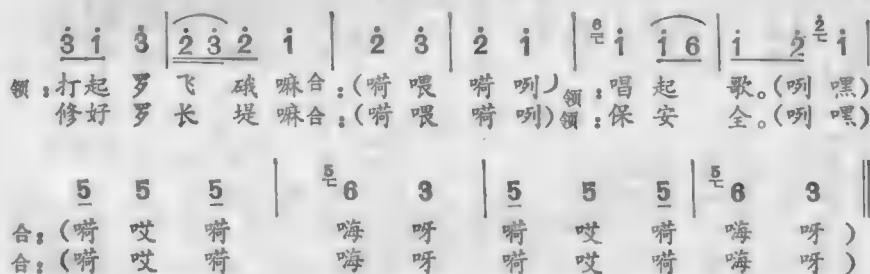 3 1 3 | 2 3 2 1 | 2 3 | 2 1 | 6 1 1 6 | 1 2 2 1
领：打起 罗 飞 硪 嘛合：(嗬 喂 嗬 咧)领：唱 起 歌。(咧 嘿)
修好 罗 长 堤 嘛合：(嗬 喂 嗬 咧)领：保 安 全。(咧 嘿)
5 5 5 | 5 6 3 | 5 5 5 | 5 6 3
合：(嗬 哎 嗬 嗨 呀 嗬 哎 嗬 嗨 呀)
合：(嗬 哎 嗬 嗨 呀 嗬 哎 嗬 嗨 呀)